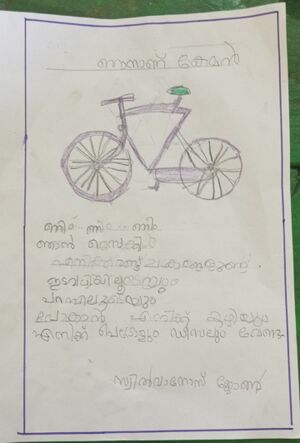 ഞാനാണ് കേമൻ
ണിം ണിം ണിം
ഞാൻ സൈക്കിൾ
എനിക്ക് രണ്ട് ചക്രങ്ങളുണ്ട്.
ഇടവഴിയിലൂടെയും
പറമ്പിലൂടെയും
പോകാൻ എനിക്ക് കഴിയും
എനിക്ക് പെട്രോളും ഡീസലും വേണ്ട
ജോൺ